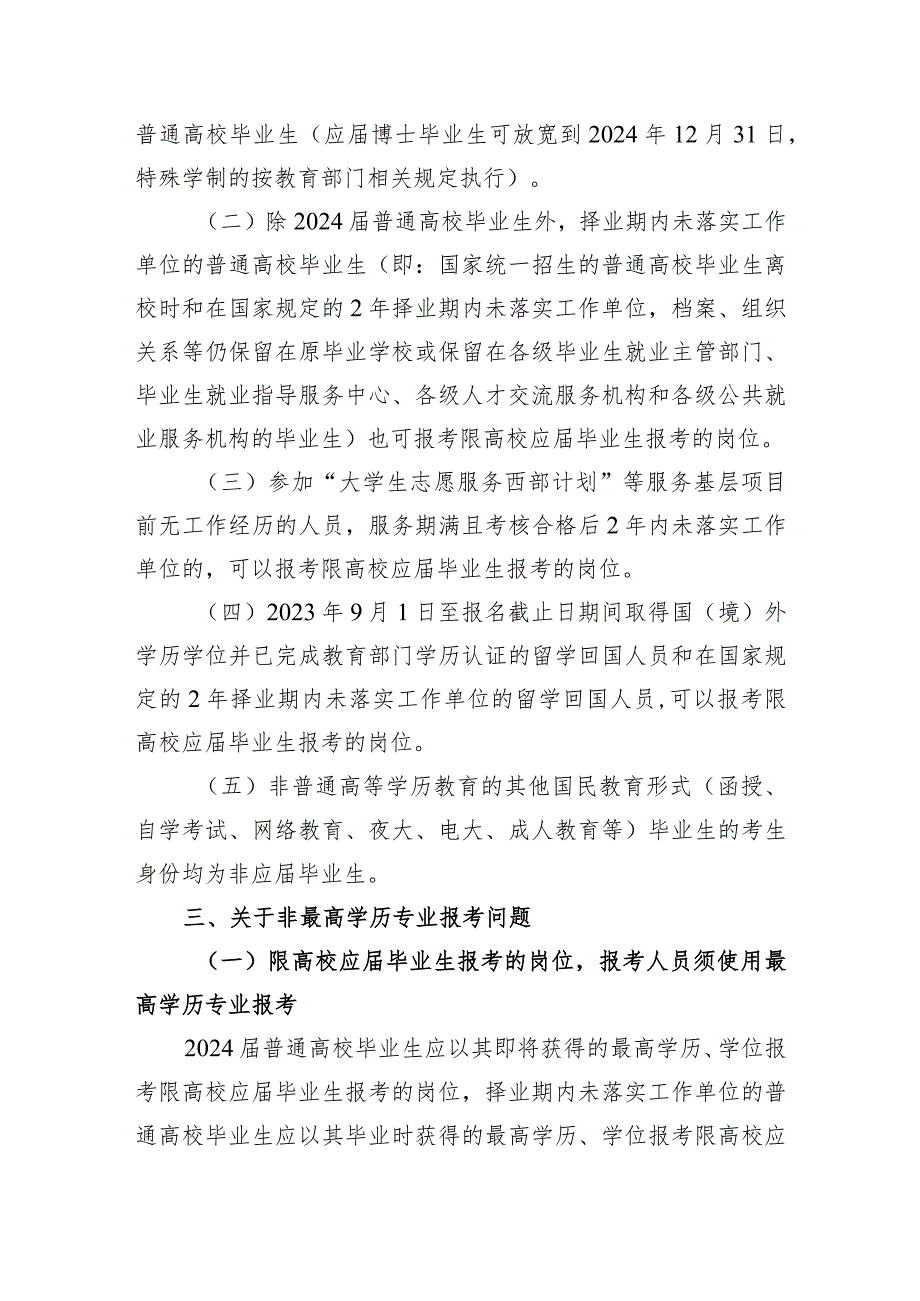 普通高校毕业生（应届博士毕业生可放宽到2024年12月31日，
特殊学制的按教育部门相关规定执行）。
（二）除2024届普通高校毕业生外，择业期内未落实工作
单位的普通高校毕业生（即：国家统一招生的普通高校毕业生离
校时和在国家规定的2年择业期内未落实工作单位，档案、组织
关系等仍保留在原毕业学校或保留在各级毕业生就业主管部门、
毕业生就业指导服务中心、各级人才交流服务机构和各级公共就
业服务机构的毕业生）也可报考限高校应届毕业生报考的岗位。
（三）参加“大学生志愿服务西部计划”等服务基层项目
前无工作经历的人员，服务期满且考核合格后2年内未落实工作
单位的，可以报考限高校应届毕业生报考的岗位。
（四）2023年9月1日至报名截止日期间取得国（境）外
学历学位并已完成教育部门学历认证的留学回国人员和在国家规
定的2年择业期内未落实工作单位的留学回国人员,可以报考限
高校应届毕业生报考的岗位。
（五）非普通高等学历教育的其他国民教育形式（函授、
自学考试、网络教育、夜大、电大、成人教育等）毕业生的考生
身份均为非应届毕业生。
三、关于非最高学历专业报考问题
（一）限高校应届毕业生报考的岗位，报考人员须使用最
高学历专业报考
2024届普通高校毕业生应以其即将获得的最高学历、学位报
考限高校应届毕业生报考的岗位，择业期内未落实工作单位的普
通高校毕业生应以其毕业时获得的最高学历、学位报考限高校应